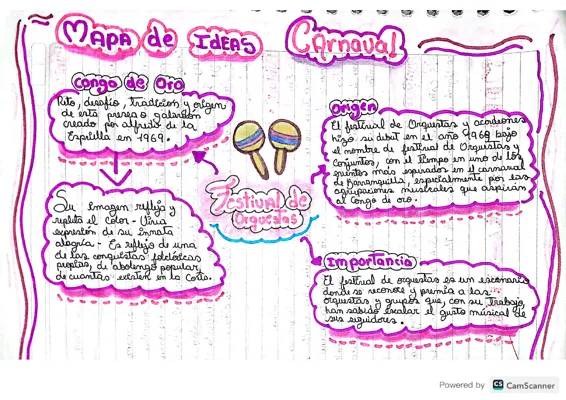 MAPA de IDEAS
Carnaval
Congo de Oro
Rito, desafío, tradición y origen
de esta presea o galardón
creado por alfredo de la
Espriella en 1969.
Su imagen refleja y
repleta el Color - Viva
expresión de su innata
alegría - Es reflejo de una
de las conquistas folclóricas
propias, de abolengo popular
de cuantas existen en la Costa.
Festival de
Orquestas
Origen
El festival de Orquestas y acordeones
hizo su debut en el año 1969 bajo
el nombre de festival de Orquestas y
Conjuntos, con el tiempo en uno de los
eventos más esperados en el carnaval
de Barranquilla, especialmente por las
agrupaciones musicales que aspiran
al Congo de oro.
Importancia
El festival de orquestas es un escenario
donde se reconoce y premia a las
orquestas y grupos que, con su trabajo,
han sabido escalar el gusto músical de
sus seguidores.
Powered by CS CamScanner